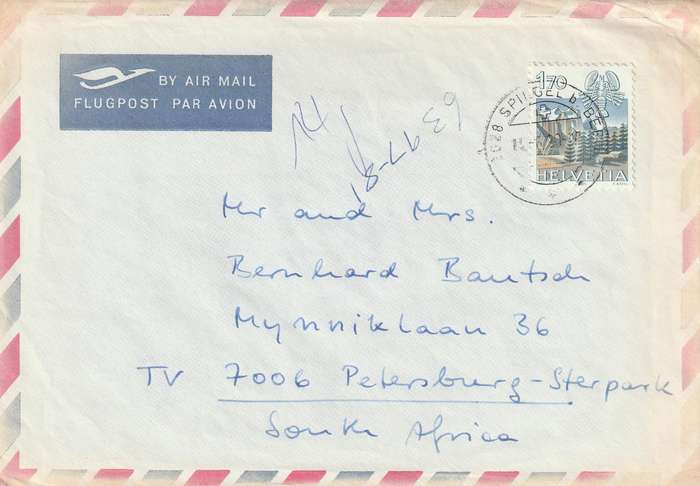 BY AIR MAIL
FLUGPOST PAR AVION
1.70
3028 SPIEGEL b. BE
HELVETIA
Mr and Mrs.
Bernhard Bautsch
Mynniklaan 36
TV 7006 Petersburg-Sterpark
South Africa